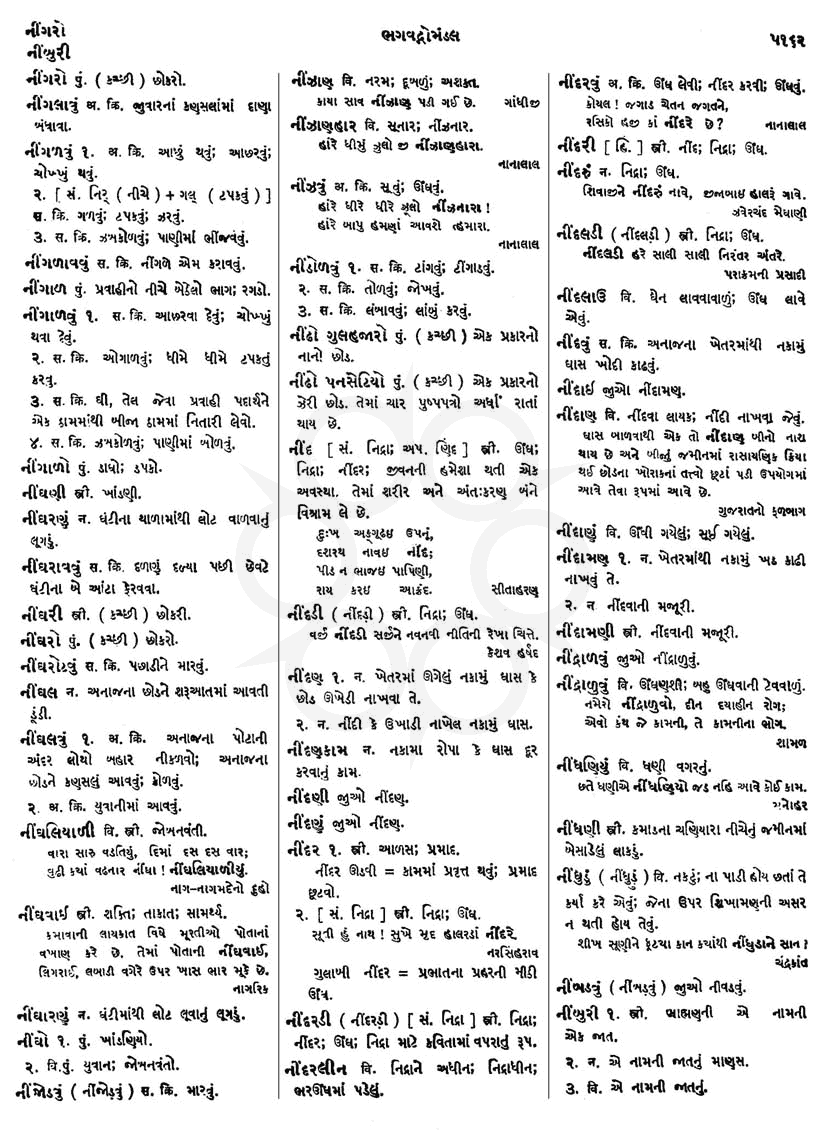 નીંગરો
નીંબુરી
ભગવદ્ગોમંડલ
૫૧૬૨
નીંગરો પું. ( કચ્છી ) છોકરો.
નીંગલાવું અ. ક્રિ. જુવારનાં કણસલાંમાં દાણા
બંધાવા.
નીંગળવું ૧. અ. ક્રિ. આછું થવું; આછરવું;
ચોખ્ખું થવું.
૨. [ સં. નિર્ ( નીચે ) + ગલ્ ( ટપકવું ) ]
સ. ક્રિ. ગળવું; ટપકવું; ઝરવું.
૩. સ. ક્રિ. ઝબકોળવું; પાણીમાં ભીંજવવું.
નીંગળાવવું સ. ક્રિ. નીંગળે એમ કરાવવું.
નીંગાળ પું. પ્રવાહીનો નીચે બેઠેલો ભાગ; રગડો.
નીંગાળવું ૧. સ. ક્રિ. આછરવા દેવું; ચોખ્ખું
થવા દેવું.
૨. સ. ક્રિ. ઓગાળવું; ધીમે ધીમે ટપકતું
કરવું.
૩. સ. ક્રિ. ઘી, તેલ જેવા પ્રવાહી પદાર્થને
એક ઠામમાંથી બીજા ઠામમાં નિતારી લેવો.
૪. સ. ક્રિ. ઝબકોળવું; પાણીમાં બોળવું.
નીંગાળો પું. ડાઘો; ડપકો.
નીંઘણી સ્ત્રી. ખાંડણી.
નીંઘરણું ન. ઘંટીના થાળામાંથી લોટ વાળવાનું
લૂગડું.
નીંઘરાવવું સ. ક્રિ. દળણું દળ્યા પછી છેવટે
ઘંટીના બે આંટા ફેરવવા.
નીંઘરી સ્ત્રી. ( કચ્છી ) છોકરી.
નીંઘરો પું. ( કચ્છી ) છોકરો.
નીંઘરોટવું સ. ક્રિ. પછાડીને મારવું.
નીંઘલ ન. અનાજના છોડને શરૂઆતમાં આવતી
ડૂંડી.
નીંઘલવું ૧. અ. ક્રિ. અનાજના પોટાની
અંદર લોથો બહાર નીકળવો; અનાજના
છોડને કણસલું આવવું; કોળવું.
૨. અ. ક્રિ. યુવાનીમાં આવવું.
નીંઘલિયાળી વિ. સ્ત્રી. જોબનવંતી.
વારા સારુ વડતિયું, દિમાં દસ દસ વાર;
વુઠી કયાં વઢનાર નીંધા ! નીંઘલિયાળીયું.
નાગ-નાગમદેનો દુહો
નીંઘવાઈ સ્ત્રી. શક્તિ; તાકાત; સામર્થ્ય.
કમાવાની લાયકાત વિષે મૂરતીઓ પોતાનાં
વખાણ કરે છે. તેમાં પોતાની નીંઘવાઈ,
લિગરાઈ, લબાડી વગેરે ઉપર ખાસ ભાર મૂકે છે.
નાગરિક
નીંઘારણું ન. ઘંટીમાંથી લોટ લૂવાનું લૂગડું.
નીંઘો ૧. પું. ખાંડણિયો.
૨. વિ. પું. યુવાન; જોબનવંતો.
નીંજોડવું ( નીંજોડ઼વું ) સ. ક્રિ. મારવું.
નીંઝાણુ વિ. નરમ; દૂબળું; અશક્ત.
કાયા સાવ નીંઝાણુ પડી ગઈ છે. ગાંધીજી
નીંઝાણુહાર વિ. સૂનાર; નીંઝનાર.
હાંરે ધીમું ઝુલો જી નીંઝાણુહારા.
નાનાલાલ
નીંઝવું અ. ક્રિ. સૂવું; ઊંઘવું.
હાંરે ધીરે ધીરે ઝૂલો નીંઝનારા !
હાંરે બાપુ હમણાં આવશે ત્હમારા.
નાનાલાલ
નીંડોળવું ૧. સ. ક્રિ. ટાંગવું; ટીંગાડવું.
૨. સ. ક્રિ. તોળવું; જોખવું.
૩. સ. ક્રિ. લંબાવવું; લાંબું કરવું.
નીંઢો ગુલહજારો પું. ( કચ્છી ) એક પ્રકારનો
નાનો છોડ.
નીંઢો પનસેટિયો પું. ( કચ્છી ) એક પ્રકારનો
ઝેરી છોડ. તેમાં ચાર પુષ્પપત્રો અર્ધાં રાતાં
થાય છે.
નીંદ [ સં. નિદ્રા; અપ. ણિંદ ] સ્ત્રી. ઊંઘ;
નિદ્રા; નીંદર; જીવનની હમેશા થતી એક
અવસ્થા. તેમાં શરીર અને અંતઃકરણ બંને
વિશ્રામ લે છે.
દુઃખ અફગૂઢઇ ઉપનૂં,
દશરથ નાવઇ નીંદ;
પીડ ન ભાજઇ પાપિણી,
રાય કરઇ આક્રંદ. સીતાહરણ
નીંદડી ( નીંદડ઼ી ) સ્ત્રી. નિદ્રા; ઊંઘ.
વર્જી નીંદડી સર્જીને નવનવી નીતિની રેખા ચિત્તે.
કેશવ હર્ષદ
નીંદણ ૧. ન. ખેતરમાં ઊગેલું નકામું ઘાસ કે
છોડ ઊખેડી નાખવા તે.
૨. ન. નીંદી કે ઉખાડી નાખેલ નકામું ઘાસ.
નીંદણકામ ન. નકામા રોપા કે ઘાસ દૂર
કરવાનું કામ.
નીંદણી જુઓ નીંદણ.
નીંદણું જુઓ નીંદણ.
નીંદર ૧. સ્ત્રી. આળસ; પ્રમાદ.
નીંદર ઊડવી = કામમાં પ્રવૃત્ત થવું; પ્રમાદ
છૂટવો.
૨. [ સં. નિદ્રા ] સ્ત્રી. નિદ્રા; ઊંઘ.
સૂતી હું નાથ ! સુખે મૃદ હાલરડાં નીંદરે.
નરસિંહરાવ
ગુલાબી નીંદર = પ્રભાતના પ્રહરની મીઠી
ઊંઘ.
નીંદરડી ( નીંદરડ઼ી ) [ સં. નિદ્રા ] સ્ત્રી. નિદ્રા;
નીંદર; ઊંઘ; નિદ્રા માટે કવિતામાં વપરાતું રૂપ.
નીંદરલીન વિ. નિદ્રાને અધીન; નિદ્રાધીન;
ભરઊંઘમાં પડેલું.
નીંદરવું અ. ક્રિ. ઊંઘ લેવી; નીંદર કરવી; ઊંઘવું.
કોયલ ! જગાડ ચેતન જગતને,
રસિકો હજી કાં નીંદરે છે? નાનાલાલ
નીંદરી [ હિં. ] સ્ત્રી. નીંદ; નિદ્રા; ઊંઘ.
નીંદરું ન. નિદ્રા; ઊંઘ.
શિવાજીને નીંદરું નાવે, જીજાબાઇ હાલરૂં ગાવે.
ઝવેરચંદ મેઘાણી
નીંદલડી ( નીંદલડ઼ી ) સ્ત્રી. નિદ્રા; ઊંઘ.
નીંદલડી હરે સાલી સાલી નિરંતર અંતરે.
પરાક્રમની પ્રસાદી
નીંદલાઉ વિ. ઘેન લાવવાવાળું; ઊંઘ લાવે
એવું.
નીંદવું સ. ક્રિ. અનાજના ખેતરમાંથી નકામું
ઘાસ ખોદી કાઢવું.
નીંદાઈ જુઓ નીંદામણ.
નીંદાણ વિ. નીંદવા લાયક; નીંદી નાખવા જેવું.
ઘાસ બાળવાથી એક તો નીંદાણ બીનો નાશ
થાય છે અને બીજું જમીનમાં રાસાયણિક ક્રિયા
થઈ છોડના ખોરાકનાં તત્ત્વો છૂટાં પડી ઉપયોગમાં
આવે તેવા રૂપમાં આવે છે.
ગુજરાતનો ફળબાગ
નીંદાણું વિ. ઊંઘી ગયેલું; સૂઈ ગયેલું.
નીંદામણ ૧. ન. ખેતરમાંથી નકામું ખડ કાઢી
નાખવું તે.
૨. ન નીંદવાની મજૂરી.
નીંદામણી સ્ત્રી. નીંદવાની મજૂરી.
નીંદ્રાળવું જુઓ નીંદ્રાળુવું.
નીંદ્રાળુવું વિ. ઊંઘણશી; બહુ ઊંઘવાની ટેવવાળું.
નમેરો નીંદ્રાળુવો, દીન દયાહીન રોગ;
એવો કંથ જે કામની, તે કામનીના ભોગ.
શામળ
નીંધણિયું વિ. ધણી વગરનું.
છતે ધણીએ નીંધણિયો જડ નહિ આવે કોઈ કામ.
મનોહર
નીંધણી સ્ત્રી. કમાડના ચણિયારા નીચેનું જમીનમાં
બેસાડેલું લાકડું.
નીંધુડું ( નીંધુડ઼ું ) વિ. નકટું; ના પાડી હોય છતાં તે
કર્યા કરે એવું; જેના ઉપર શિખામણની અસર
ન થતી હોય તેવું.
શીખ સૂણીને ફૂટયા કાન કયાંથી નીંધુડાને સાન ?
ચંદ્રકાંત
નીંબડવું ( નીંબડ઼વું ) જુઓ નીવડવું.
નીંબુરી ૧. સ્ત્રી. બ્રાહ્મણની એ નામની
એક જાત.
૨. ન. એ નામની જાતનું માણસ.
૩. વિ. એ નામની જાતનું.